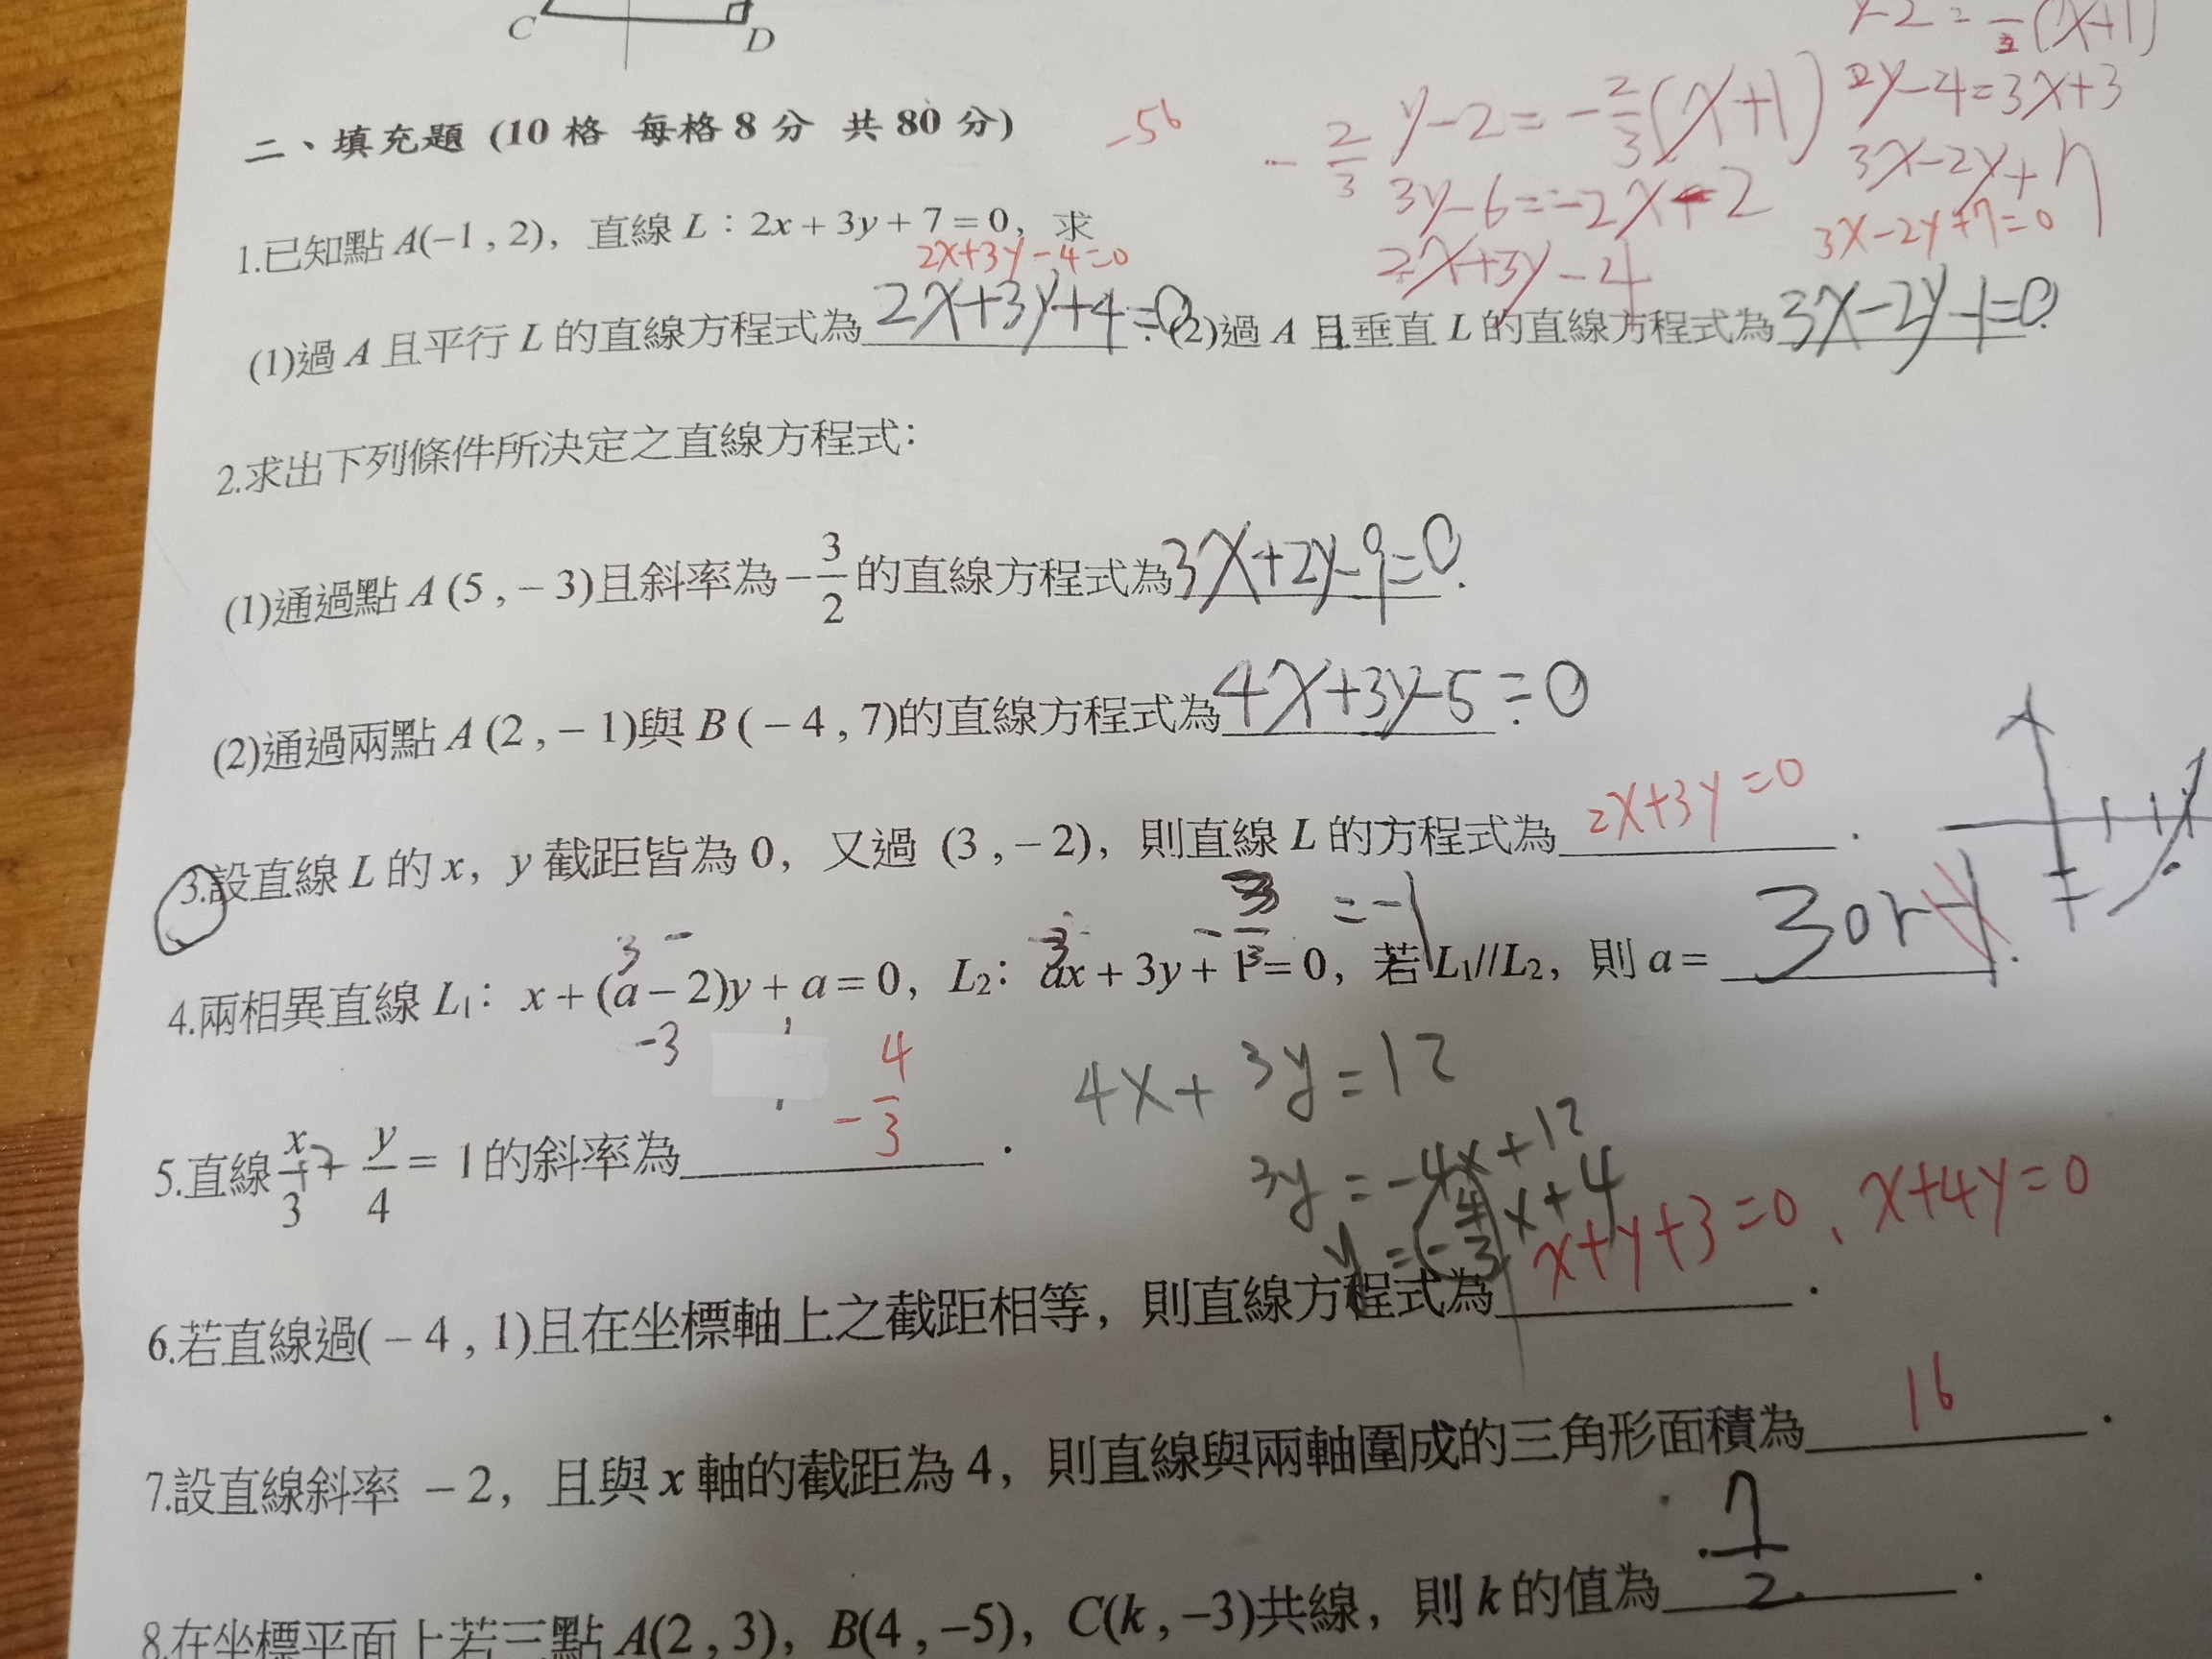 C D
y-2=-(x+1)
二、填充題 (10 格 每格 8 分 共 80 分) -56
-2/3 y-2=-2/3(x+1) 2y-4=3x+3
3y-6=-2x-2 3x-2y+7
1.已知點 A(−1 , 2)，直線 L：2x + 3y + 7 = 0，求
2x+3y-4=0 2x+3y-4 3x-2y+7=0
(1)過 A 且平行 L 的直線方程式為 2x+3y+4=0. (2)過 A 且垂直 L 的直線方程式為 3x-2y-1=0.
2.求出下列條件所決定之直線方程式：
(1)通過點 A (5 , − 3)且斜率為 −3/2 的直線方程式為 3x+2y-9=0.
(2)通過兩點 A (2 , − 1)與 B ( − 4 , 7)的直線方程式為 4x+3y-5=0.
3.設直線 L 的 x，y 截距皆為 0，又過 (3 , − 2)，則直線 L 的方程式為 2x+3y=0.
3 - 3 =-1
4.兩相異直線 L1：x + (a − 2)y + a = 0，L2：ax + 3y + 1 = 0，若 L1//L2，則 a = 3 or -1.
-3
4x+3y=12
5.直線 x/3 + y/4 = 1 的斜率為 -4/3.
3y=-4x+12
y=(-4/3)x+4
6.若直線過( − 4 , 1)且在坐標軸上之截距相等，則直線方程式為 x+y+3=0、x+4y=0.
7.設直線斜率 − 2，且與 x 軸的截距為 4，則直線與兩軸圍成的三角形面積為 16.
8.在坐標平面上若三點 A(2 , 3)，B(4 , −5)，C(k , −3)共線，則 k 的值為 7/2.